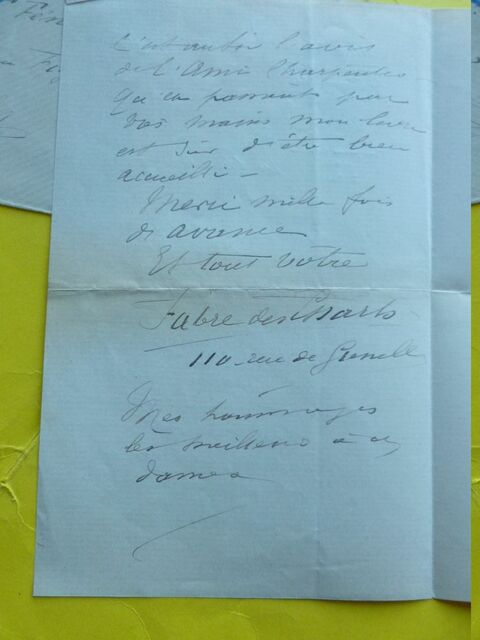 C'est aussi l'avis
de l'Ami Charpentier
qu'en passant par
vos mains mon livre
est sûr d'être bien
accueilli –
Merci mille fois
d'avance
Et tout votre
Fabre des Essarts
110 rue de Grenelle
Mes hommages
les meilleurs à ces
dames